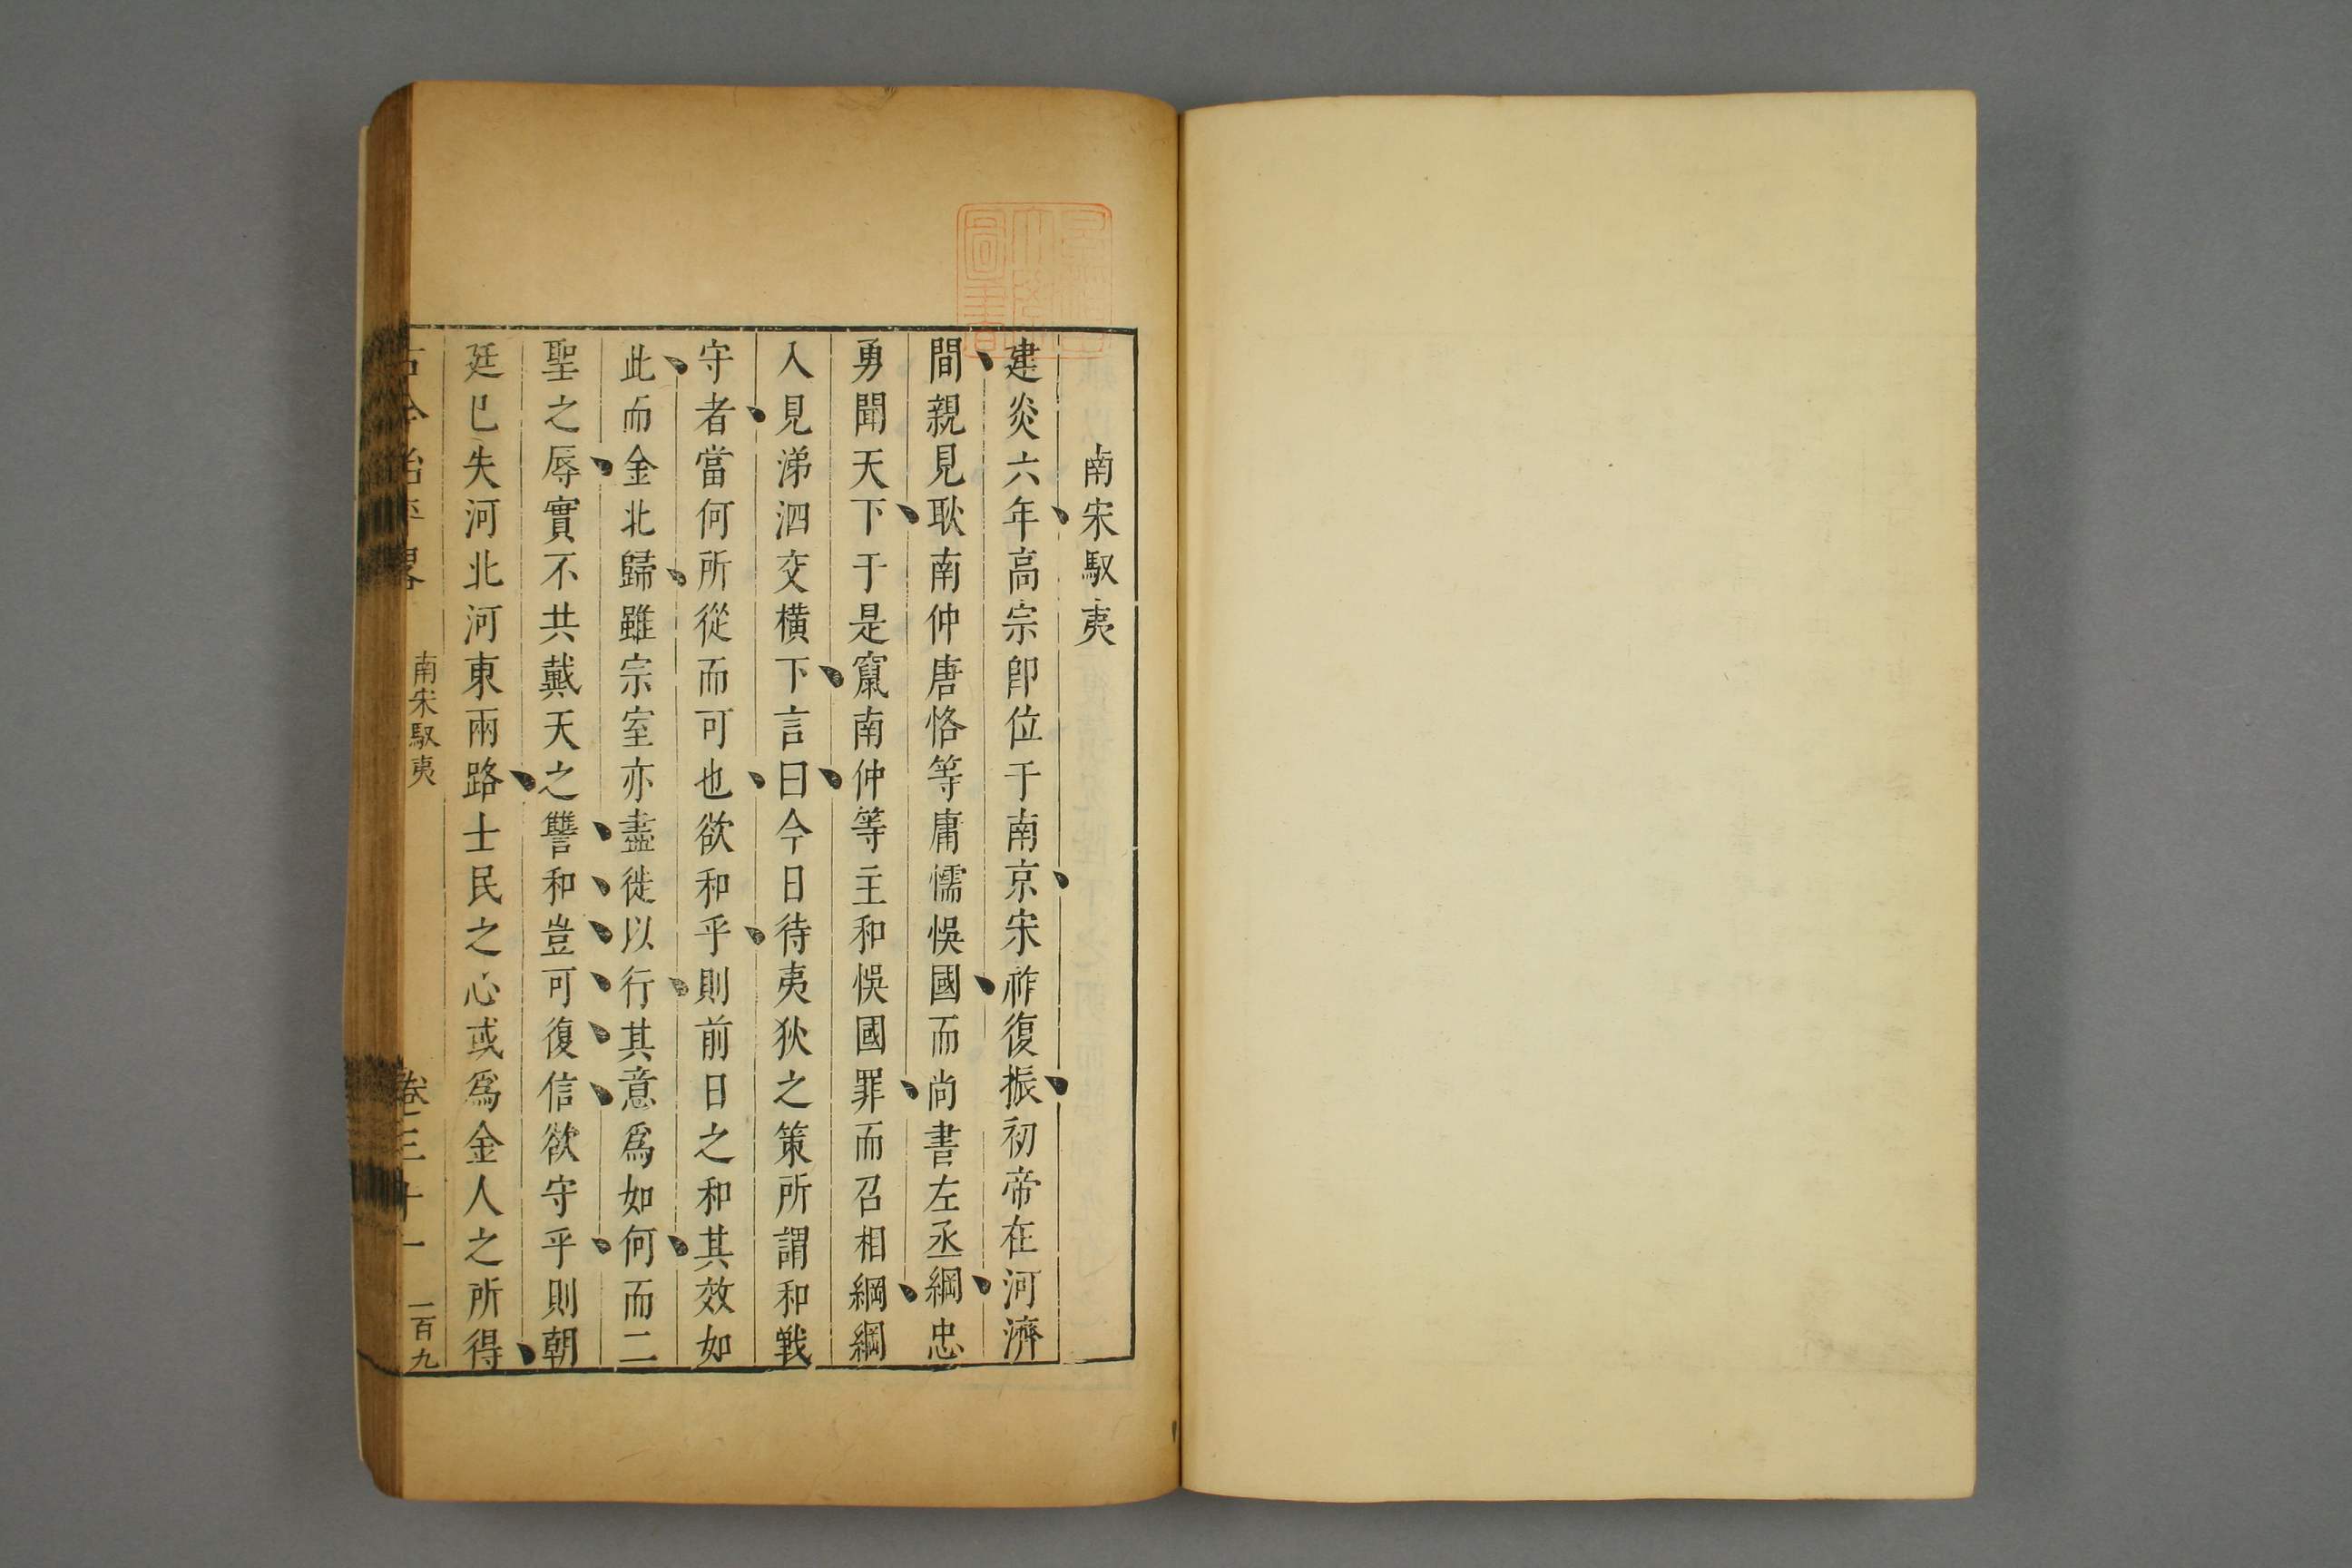 南宋馭夷
建炎六年高宗卽位于南京宋祚復振初帝在河濟
間親見耿南仲唐恪等庸懦悞國而尚書左丞綱忠
勇聞天下于是竄南仲等主和悞國罪而召相綱綱
入見涕泗交橫下言曰今日待夷狄之策所謂和戰
守者當何所從而可也欲和乎則前日之和其效如
此而金北歸雖宗室亦盡徙以行其意爲如何而二
聖之辱實不共戴天之讐和豈可復信欲守乎則朝
廷已失河北河東兩路士民之心或爲金人之所得
古今治平畧
南宋馭夷
卷三十一
一百九